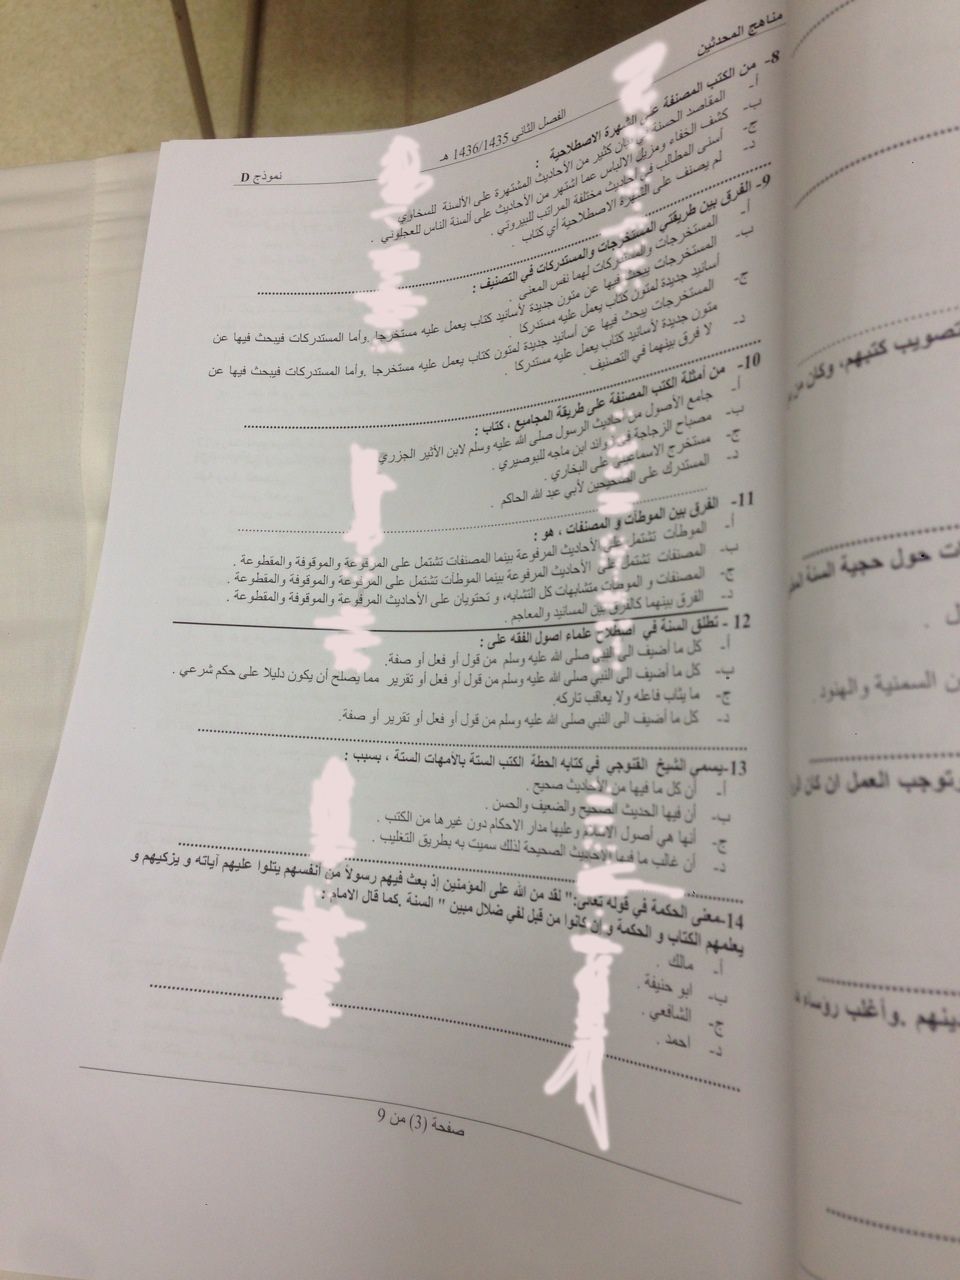 مناهج المحدثين
الفصل الثاني 1436/1435 هـ
نموذج D
8- من الكتب المصنفة على الشهرة الاصطلاحية :
أ- المقاصد الحسنة في بيان كثير من الأحاديث المشتهرة على الألسنة للسخاوي
ب- كشف الخفاء ومزيل الالباس عما اشتهر من الأحاديث على ألسنة الناس للعجلوني .
ج- أسنى المطالب في أحاديث مختلفة المراتب للبيروتي .
د- لم يصنف على الشهرة الاصطلاحية أي كتاب .
9- الفرق بين طريقتي المستخرجات والمستدركات في التصنيف :
أ- المستخرجات والمستدركات لهما نفس المعنى .
ب- المستخرجات يبحث فيها عن متون جديدة لأسانيد كتاب يعمل عليه مستخرجا .وأما المستدركات فيبحث فيها عن
أسانيد جديدة لمتون كتاب يعمل عليه مستدركا .
ج- المستخرجات يبحث فيها عن أسانيد جديدة لمتون كتاب يعمل عليه مستخرجا .وأما المستدركات فيبحث فيها عن
متون جديدة لأسانيد كتاب يعمل عليه مستدركا .
د- لا فرق بينهما في التصنيف .
10- من أمثلة الكتب المصنفة على طريقة المجاميع ، كتاب :
أ- جامع الأصول من أحاديث الرسول صلى الله عليه وسلم لابن الأثير الجزري
ب- مصباح الزجاجة في زوائد ابن ماجه للبوصيري .
ج- مستخرج الاسماعيلي على البخاري .
د- المستدرك على الصحيحين لأبي عبد الله الحاكم .
11- الفرق بين الموطآت و المصنفات ، هو :
أ- الموطآت تشتمل على الأحاديث المرفوعة بينما المصنفات تشتمل على المرفوعة والموقوفة والمقطوعة .
ب- المصنفات تشتمل على الأحاديث المرفوعة بينما الموطآت تشتمل على المرفوعة والموقوفة والمقطوعة .
ج- المصنفات و الموطآت متشابهات كل التشابه، و تحتويان على الأحاديث المرفوعة والموقوفة والمقطوعة .
د- الفرق بينهما كالفرق بين المسانيد والمعاجم .
12 - تطلق السنة في اصطلاح علماء اصول الفقه على :
أ- كل ما أضيف الى النبي صلى الله عليه وسلم من قول أو فعل أو صفة.
ب- كل ما أضيف الى النبي صلى الله عليه وسلم من قول أو فعل أو تقرير مما يصلح أن يكون دليلا على حكم شرعي .
ج- ما يثاب فاعله ولا يعاقب تاركه.
د- كل ما أضيف الى النبي صلى الله عليه وسلم من قول أو فعل أو تقرير أو صفة.
13-يسمي الشيخ القنوجي في كتابه الحطة الكتب الستة بالأمهات الستة ، بسبب :
أ- أن كل ما فيها من الأحاديث صحيح .
ب- أن فيها الحديث الصحيح والضعيف والحسن .
ج- أنها هي أصول الاسلام وعليها مدار الاحكام دون غيرها من الكتب .
د- أن غالب ما فيها الاحاديث الصحيحة لذلك سميت به بطريق التغليب .
14-معنى الحكمة في قوله تعالى:" لقد من الله على المؤمنين إذ بعث فيهم رسولاً من أنفسهم يتلوا عليهم آياته و يزكيهم و
يعلمهم الكتاب و الحكمة و إن كانوا من قبل لفي ضلال مبين " السنة .كما قال الامام :
أ- مالك .
ب- ابو حنيفة .
ج- الشافعي .
د- احمد .
صفحة (3) من 9
تصويب كتبهم، وكان من
ت حول حجية السنة
ن السمنية والهنود.
وتوجب العمل ان كان
ينهم .وأغلب رؤساء